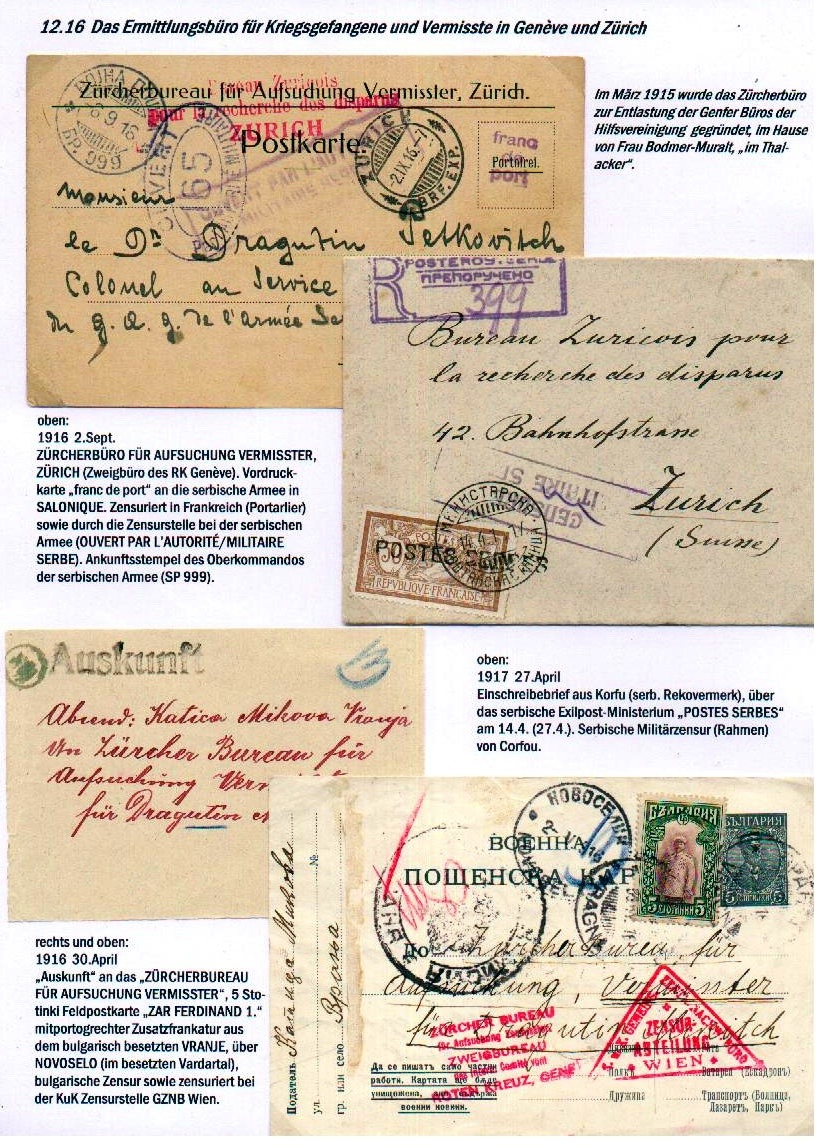 12.16 Das Ermittlungsbüro für Kriegsgefangene und Vermisste in Genève und Zürich
Zürcherbureau für Aufsuchung Vermisster, Zürich.
Bureau Zuricois
pour la recherche des disparus
ZURICH
Postkarte.
БР. 999
OUVERT
65
ZÜRICH
-2.IX.16.-7
BRF. EXP.
franc
de
port
Portofrei.
Monsieur
le Dr Dragutin Petkovitch
Colonel au Service
du g. Q. g. de l'armée Se
Im März 1915 wurde das Zürcherbüro
zur Entlastung der Genfer Büros der
Hilfsvereinigung gegründet, im Hause
von Frau Bodmer-Muralt, „im Thal-
acker".
R
ПРЕПОРУЧЕНО
399
Bureau Zuricois pour
la recherche des disparus
42. Bahnhofstrasse
Zurich
(Suisse)
POSTES
REPVBLIQVE FRANÇAISE
oben:
1916 2.Sept.
ZÜRCHERBÜRO FÜR AUFSUCHUNG VERMISSTER,
ZÜRICH (Zweigbüro des RK Genève). Vordruck-
karte „franc de port" an die serbische Armee in
SALONIQUE. Zensuriert in Frankreich (Portarlier)
sowie durch die Zensurstelle bei der serbischen
Armee (OUVERT PAR L'AUTORITÉ/MILITAIRE
SERBE). Ankunftsstempel des Oberkommandos
der serbischen Armee (SP 999).
Auskunft
Absend: Katica Mikova Vranja
An Zürcher Bureau für
Aufsuchung
für Draguten
oben:
1917 27.April
Einschreibebrief aus Korfu (serb. Rekovermerk), über
das serbische Exilpost-Ministerium „POSTES SERBES"
am 14.4. (27.4.). Serbische Militärzensur (Rahmen)
von Corfou.
rechts und oben:
1916 30.April
„Auskunft" an das „ZÜRCHERBUREAU
FÜR AUFSUCHUNG VERMISSTER", 5 Sto-
tinki Feldpostkarte „ZAR FERDINAND 1."
mitportogrechter Zusatzfrankatur aus
dem bulgarisch besetzten VRANJE, über
NOVOSELO (im besetzten Vardartal),
bulgarische Zensur sowie zensuriert bei
der KuK Zensurstelle GZNB Wien.
ВОЕННА
ПОЩЕНСКА КАР
НОВОСЕЛЦИ
БЪЛГАРИЯ
5 СТОТИНКИ 5
БЪЛГАРИЯ
5
До Zürcherbureau für
Aufsuchung Vermisster
für
ZÜRCHER BUREAU
für Aufsuchung Vermisster
ZWEIGBUREAU
des Intern. Comité vom
ROTEN KREUZ, GENF
ZENSUR-
ABTEILUNG
WIEN
Подател
№
ул.
гр. или село Враня
Да се пишат само частни
работи. Картата ще бъде
унищожена, ако съдържа
военни новини.
Полкъ
Батарея (Ескадронъ)
Дружина
Транспортъ (Болница,
Лазаретъ, Паркъ).